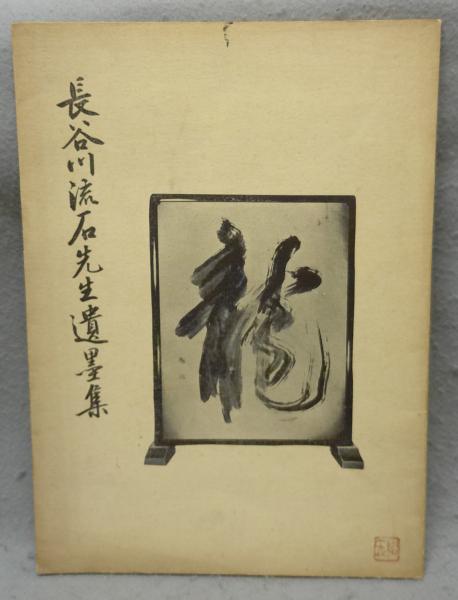 長谷川流石先生遺墨集
龍